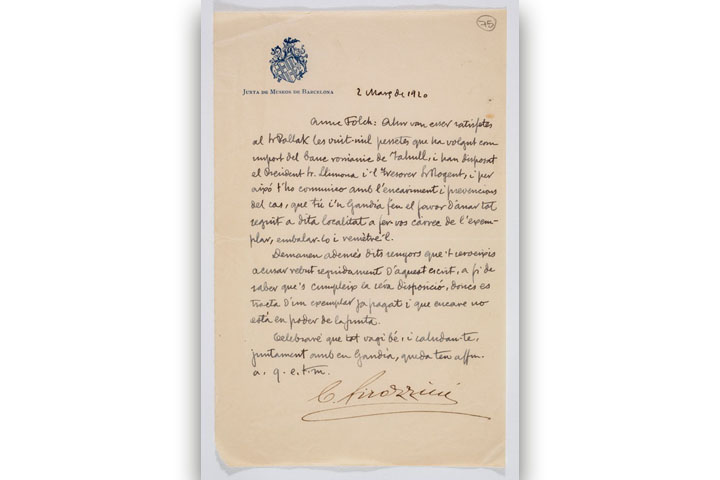 75
JUNTA DE MUSEOS DE BARCELONA
2 Març de 1920
Amic Folch: Ahir van esser satisfetes
al Sr Pollak les vuit-mil pessetes que ha volgut com
import del banc romànic de Tahull, i han disposat
el President Sr. Llimona i 'l Tresorer Sr Rogent, i per
aixó t'ho comunico amb l'encariment i prevencions
del cas, que tú i'n Gandia feu el favor d'anar tot
seguit a dita localitat a fer vos càrrec de l'exem-
plar, embalar-lo i remetre'l.
Demanen además dits senyors que't serveixis
acusar rebut seguidament d'aquest escrit, a fi de
saber que's cumpleix la séva disposició, donçs es
tracta d'un exemplar ja pagat i que encare no
està en poder de la Junta.
Celebraré que tot vagi bé, i saludan-te,
juntament amb en Gandia, queda ton affm.
a. q. e. t. m.
C. Pirozzini